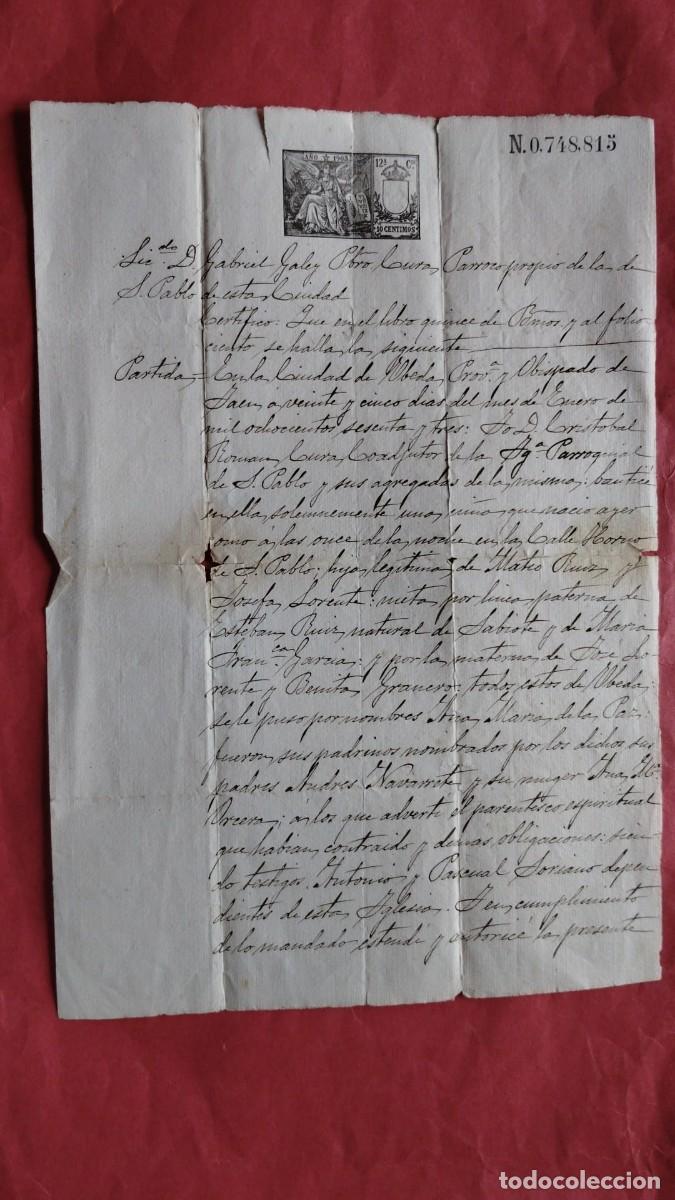 N.0,748,815
AÑO 1903
12ª Cª
10 CENTIMOS
Lic.do D. Gabriel Galey Pbro, Cura Parroco propio de la de
S. Pablo de esta Ciudad
Certifico: Que en el libro quince de Bmos y al folio
ciento se halla la siguiente
Partida = En la Ciudad de Ubeda, Prov.ª y Obispado de
Jaen a veinte y cinco dias del mes de Enero de
mil ochocientos sesenta y tres: Yo D. Cristobal
Roman, Cura Coadjutor de la Yg.ª Parroquial
de S. Pablo y sus agregadas de la misma: bauticé
en ella, solemnemente una niña que nacio ayer
como á las once de la noche en la Calle Horno
de S. Pablo: hija legitima de Mateo Ruiz y
Josefa Lorente: nieta por linea paterna de
Esteban Ruiz natural de Sabiote y de Maria
Fran.ca Garcia: y por la materna de Jose Lo
rente y Benita Granero: todos estos de Ubeda:
se le puso por nombres Ana Maria de la Paz:
fueron sus padrinos nombrados por los dichos sus
padres Andres Navarrete y su muger Ana M.ª
Orcera: á los que adverti el parentesco espiritual
que habian contraido y demas obligaciones: sien
do testigos Antonio y Pascual Soriano depen
dientes de esta Yglesia. Y en cumplimiento
de lo mandado estendi y autoricé la presente
todocoleccion